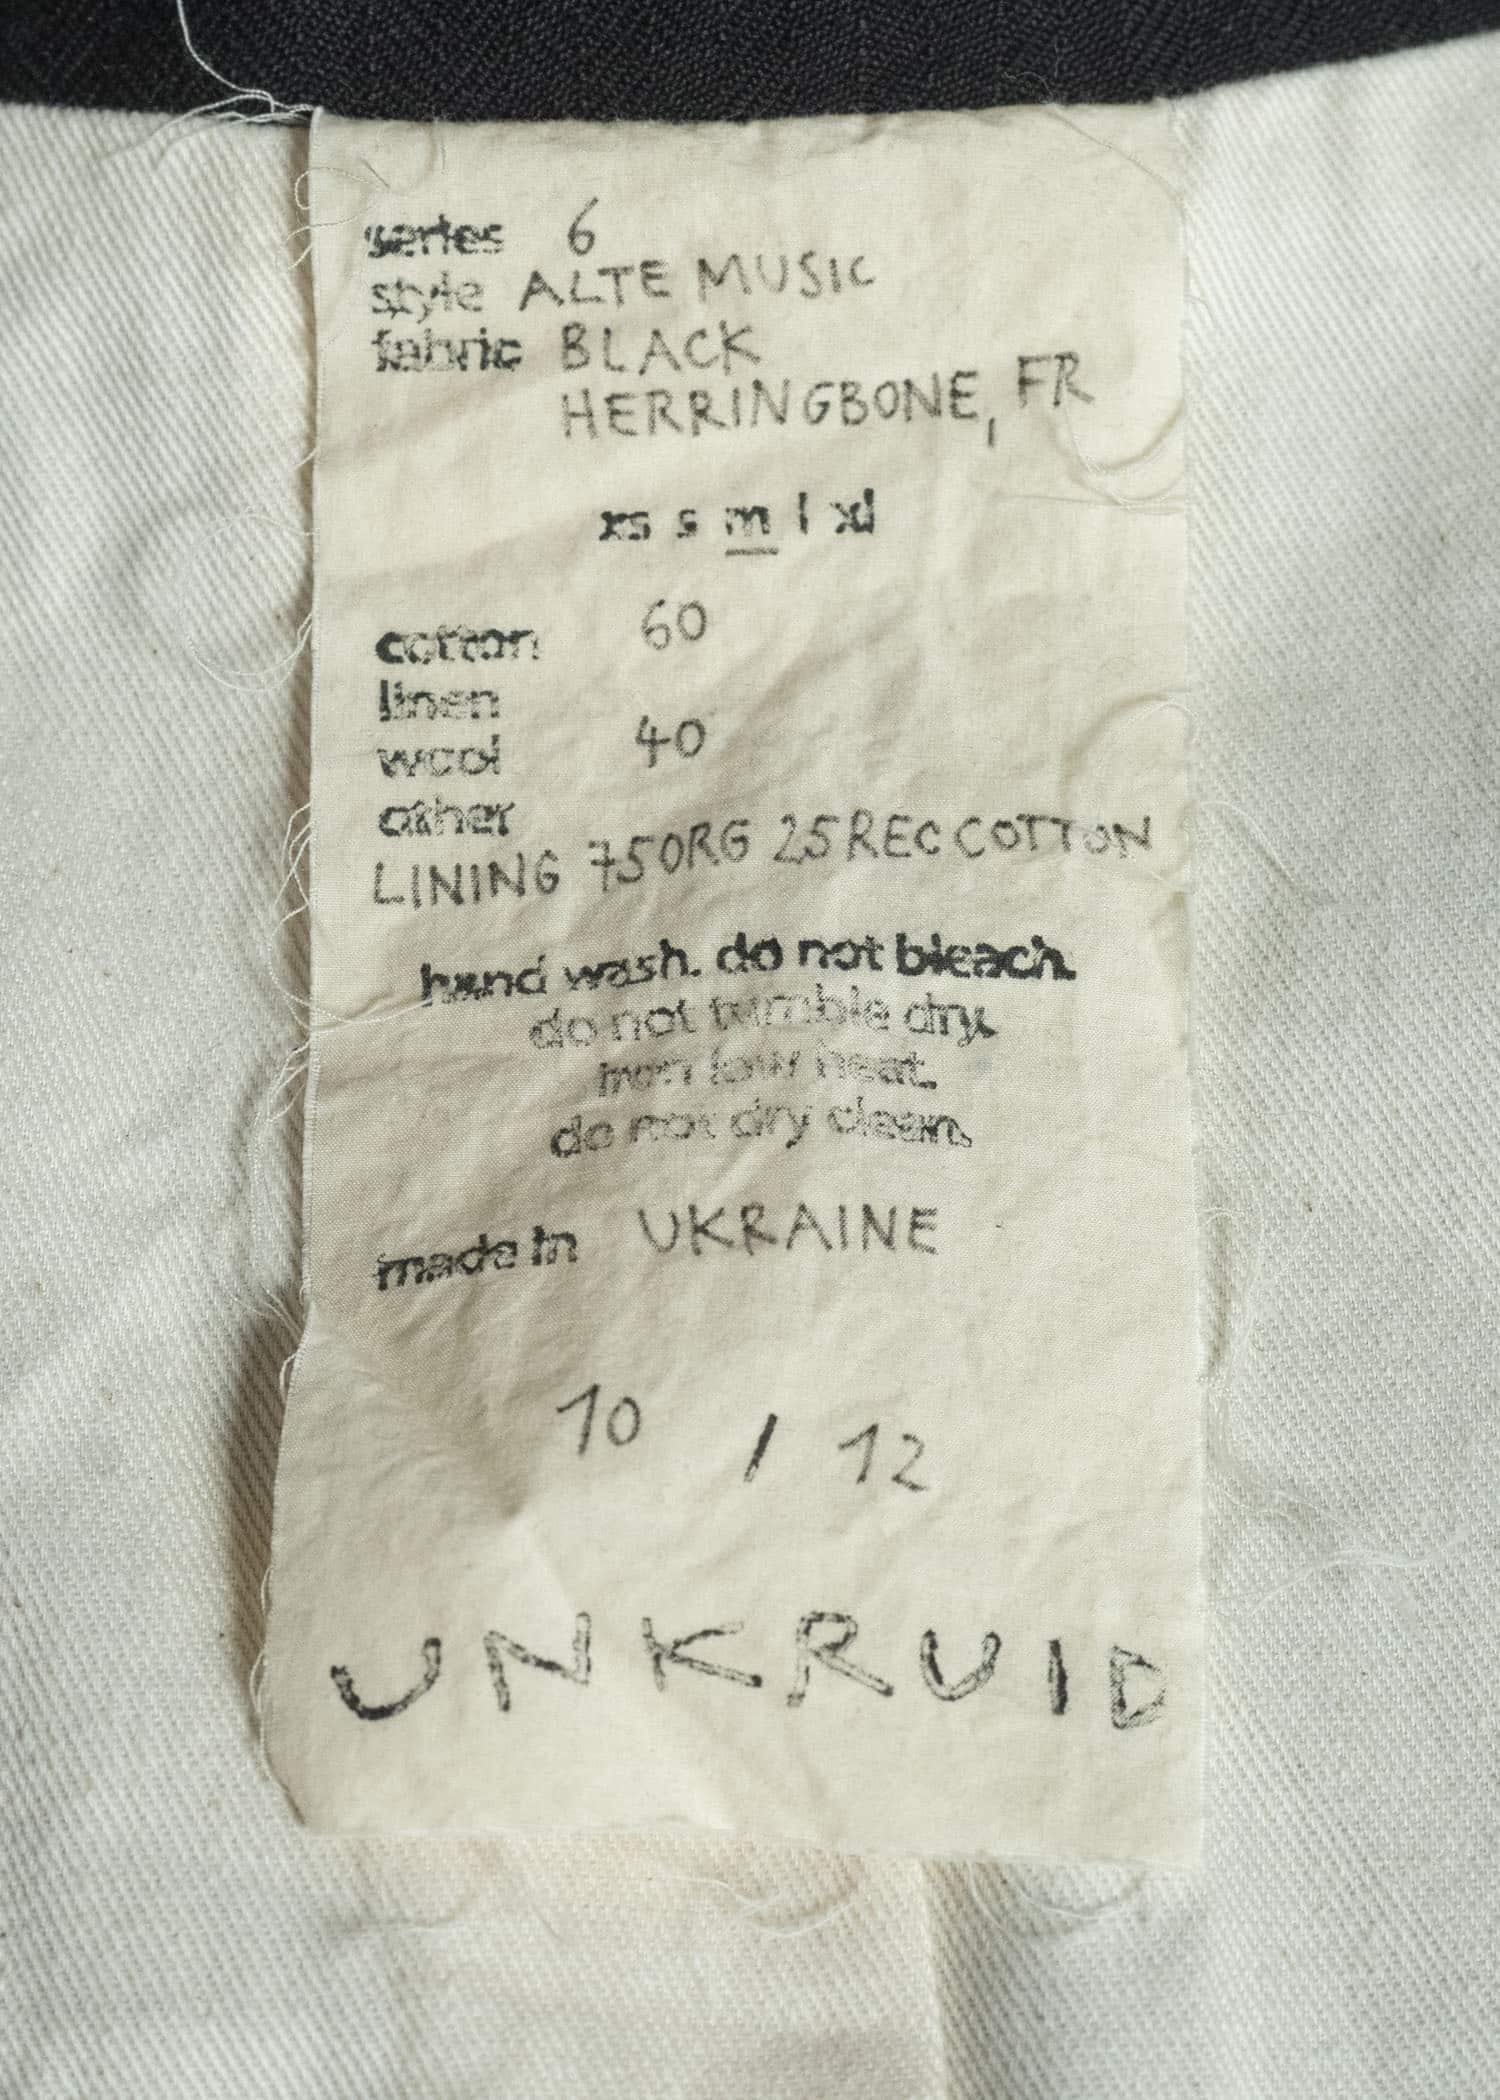 series 6
style ALTE MUSIC
fabric BLACK
HERRINGBONE, FR
xs s m l xl
cotton 60
linen
wool 40
other
LINING 75 ORG 25 REC COTTON
hand wash. do not bleach.
do not tumble dry.
iron low heat.
do not dry clean.
made in UKRAINE
10 / 12
UNKRUID